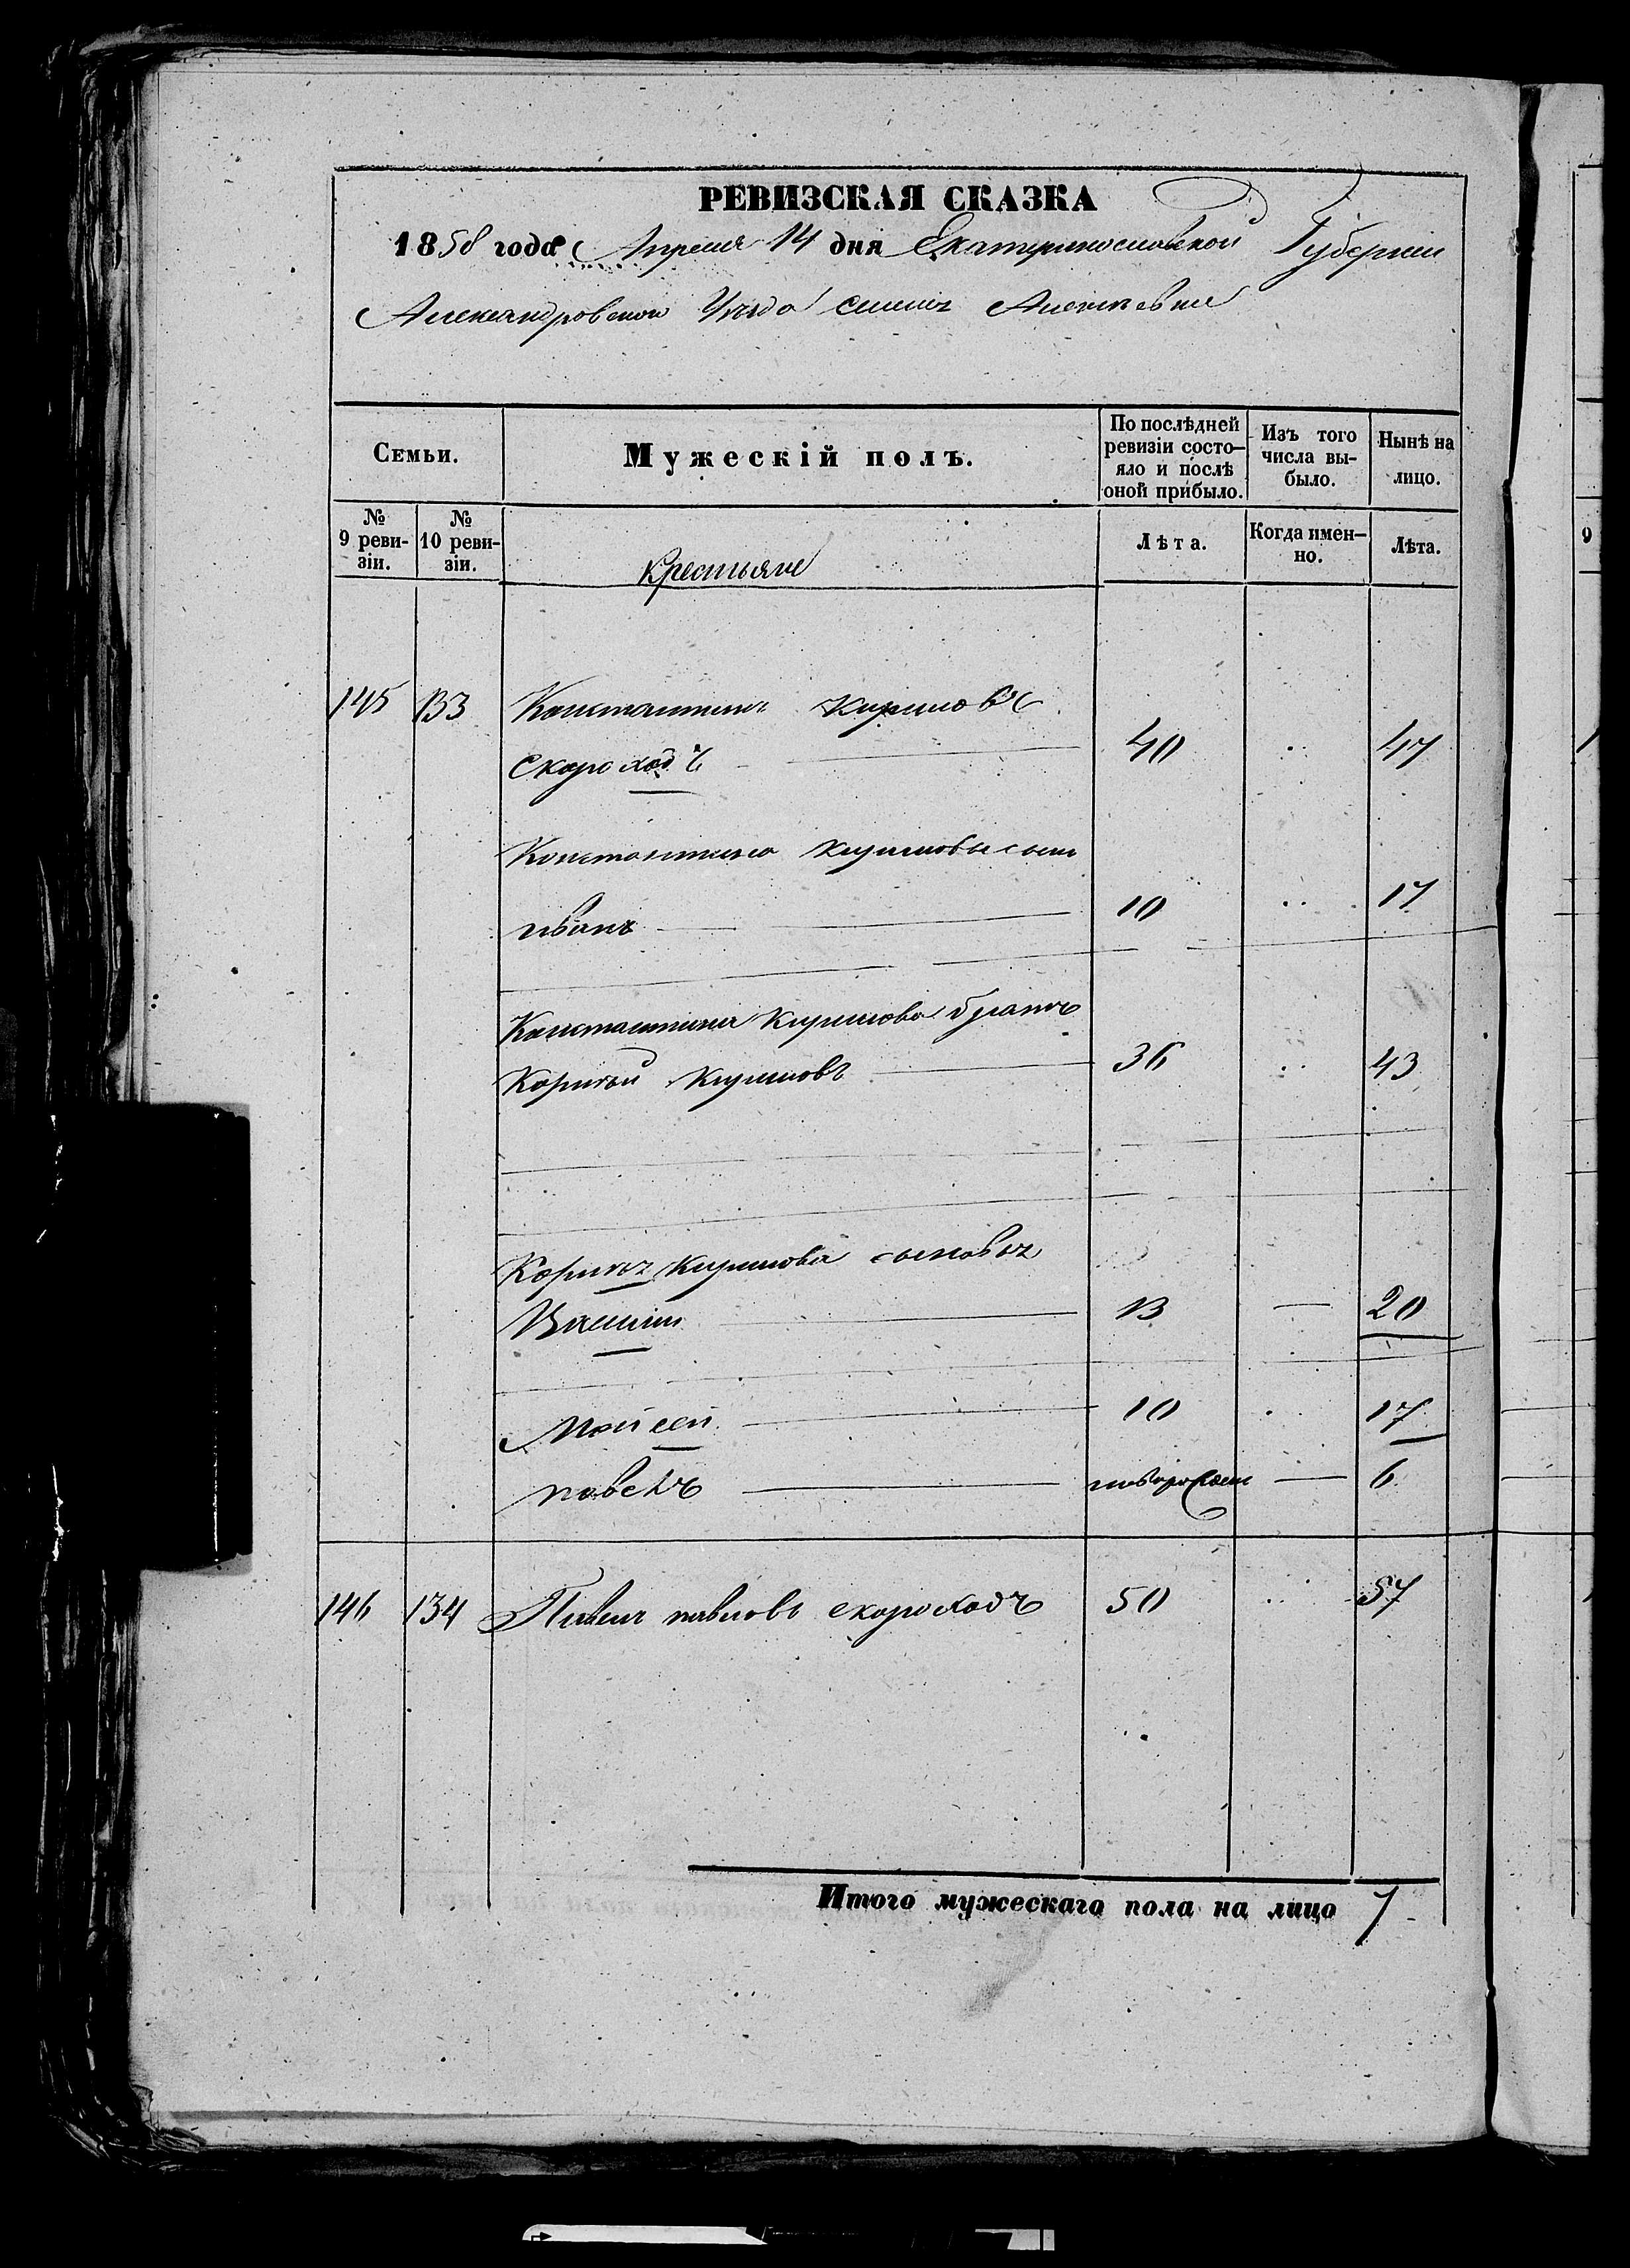 РЕВИЗСКАЯ СКАЗКА
1858 года Апреля 14 дня Екатеринославской Губернии
Александровского Уезда Алексеевки
Семьи.
Мужескій полъ.
По послѣдней ревизіи состо-яло и послѣ оной прибыло.
Изъ того числа вы-было.
Нынѣ на лицо.
№ 9 реви-зіи.
№ 10 реви-зіи.
Крестьяне
Лѣта.
Когда имен-но.
Лѣта.
145 133 Константинъ Кириловъ
Скороходъ 40 47
Константина Кирилова сынъ
иванъ 10 17
Константина Кирилова братъ
Корнѣй Кириловъ 36 43
Корнѣя Кирилова сыновья
Василий 13 20
Мойсей 10 17
павелъ новорожден 6
146 134 Павелъ павловъ скороходъ 50 57
Итого мужескаго пола на лицо 7